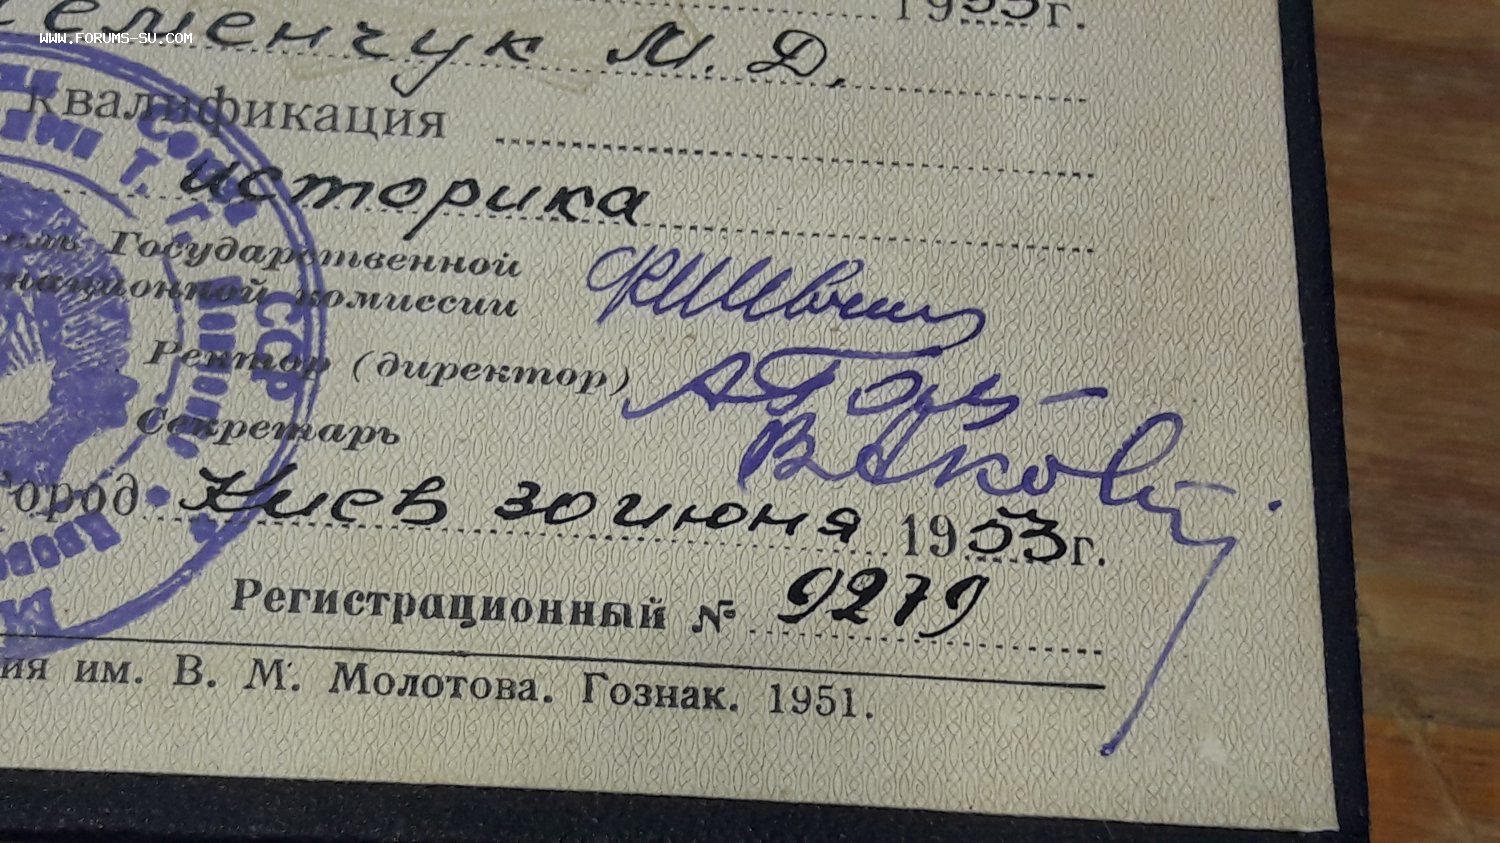 1953г.
WWW.FORUMS-SU.COM
еменчук М. Д.
квалификация
историка
ель Государственной
национной комиссии
Ректор (директор)
А Гол
Секретарь
В Яков
город Киев 30 июня 1953г.
Регистрационный № 9279
ия им. В. М. Молотова. Гознак. 1951.
СССР